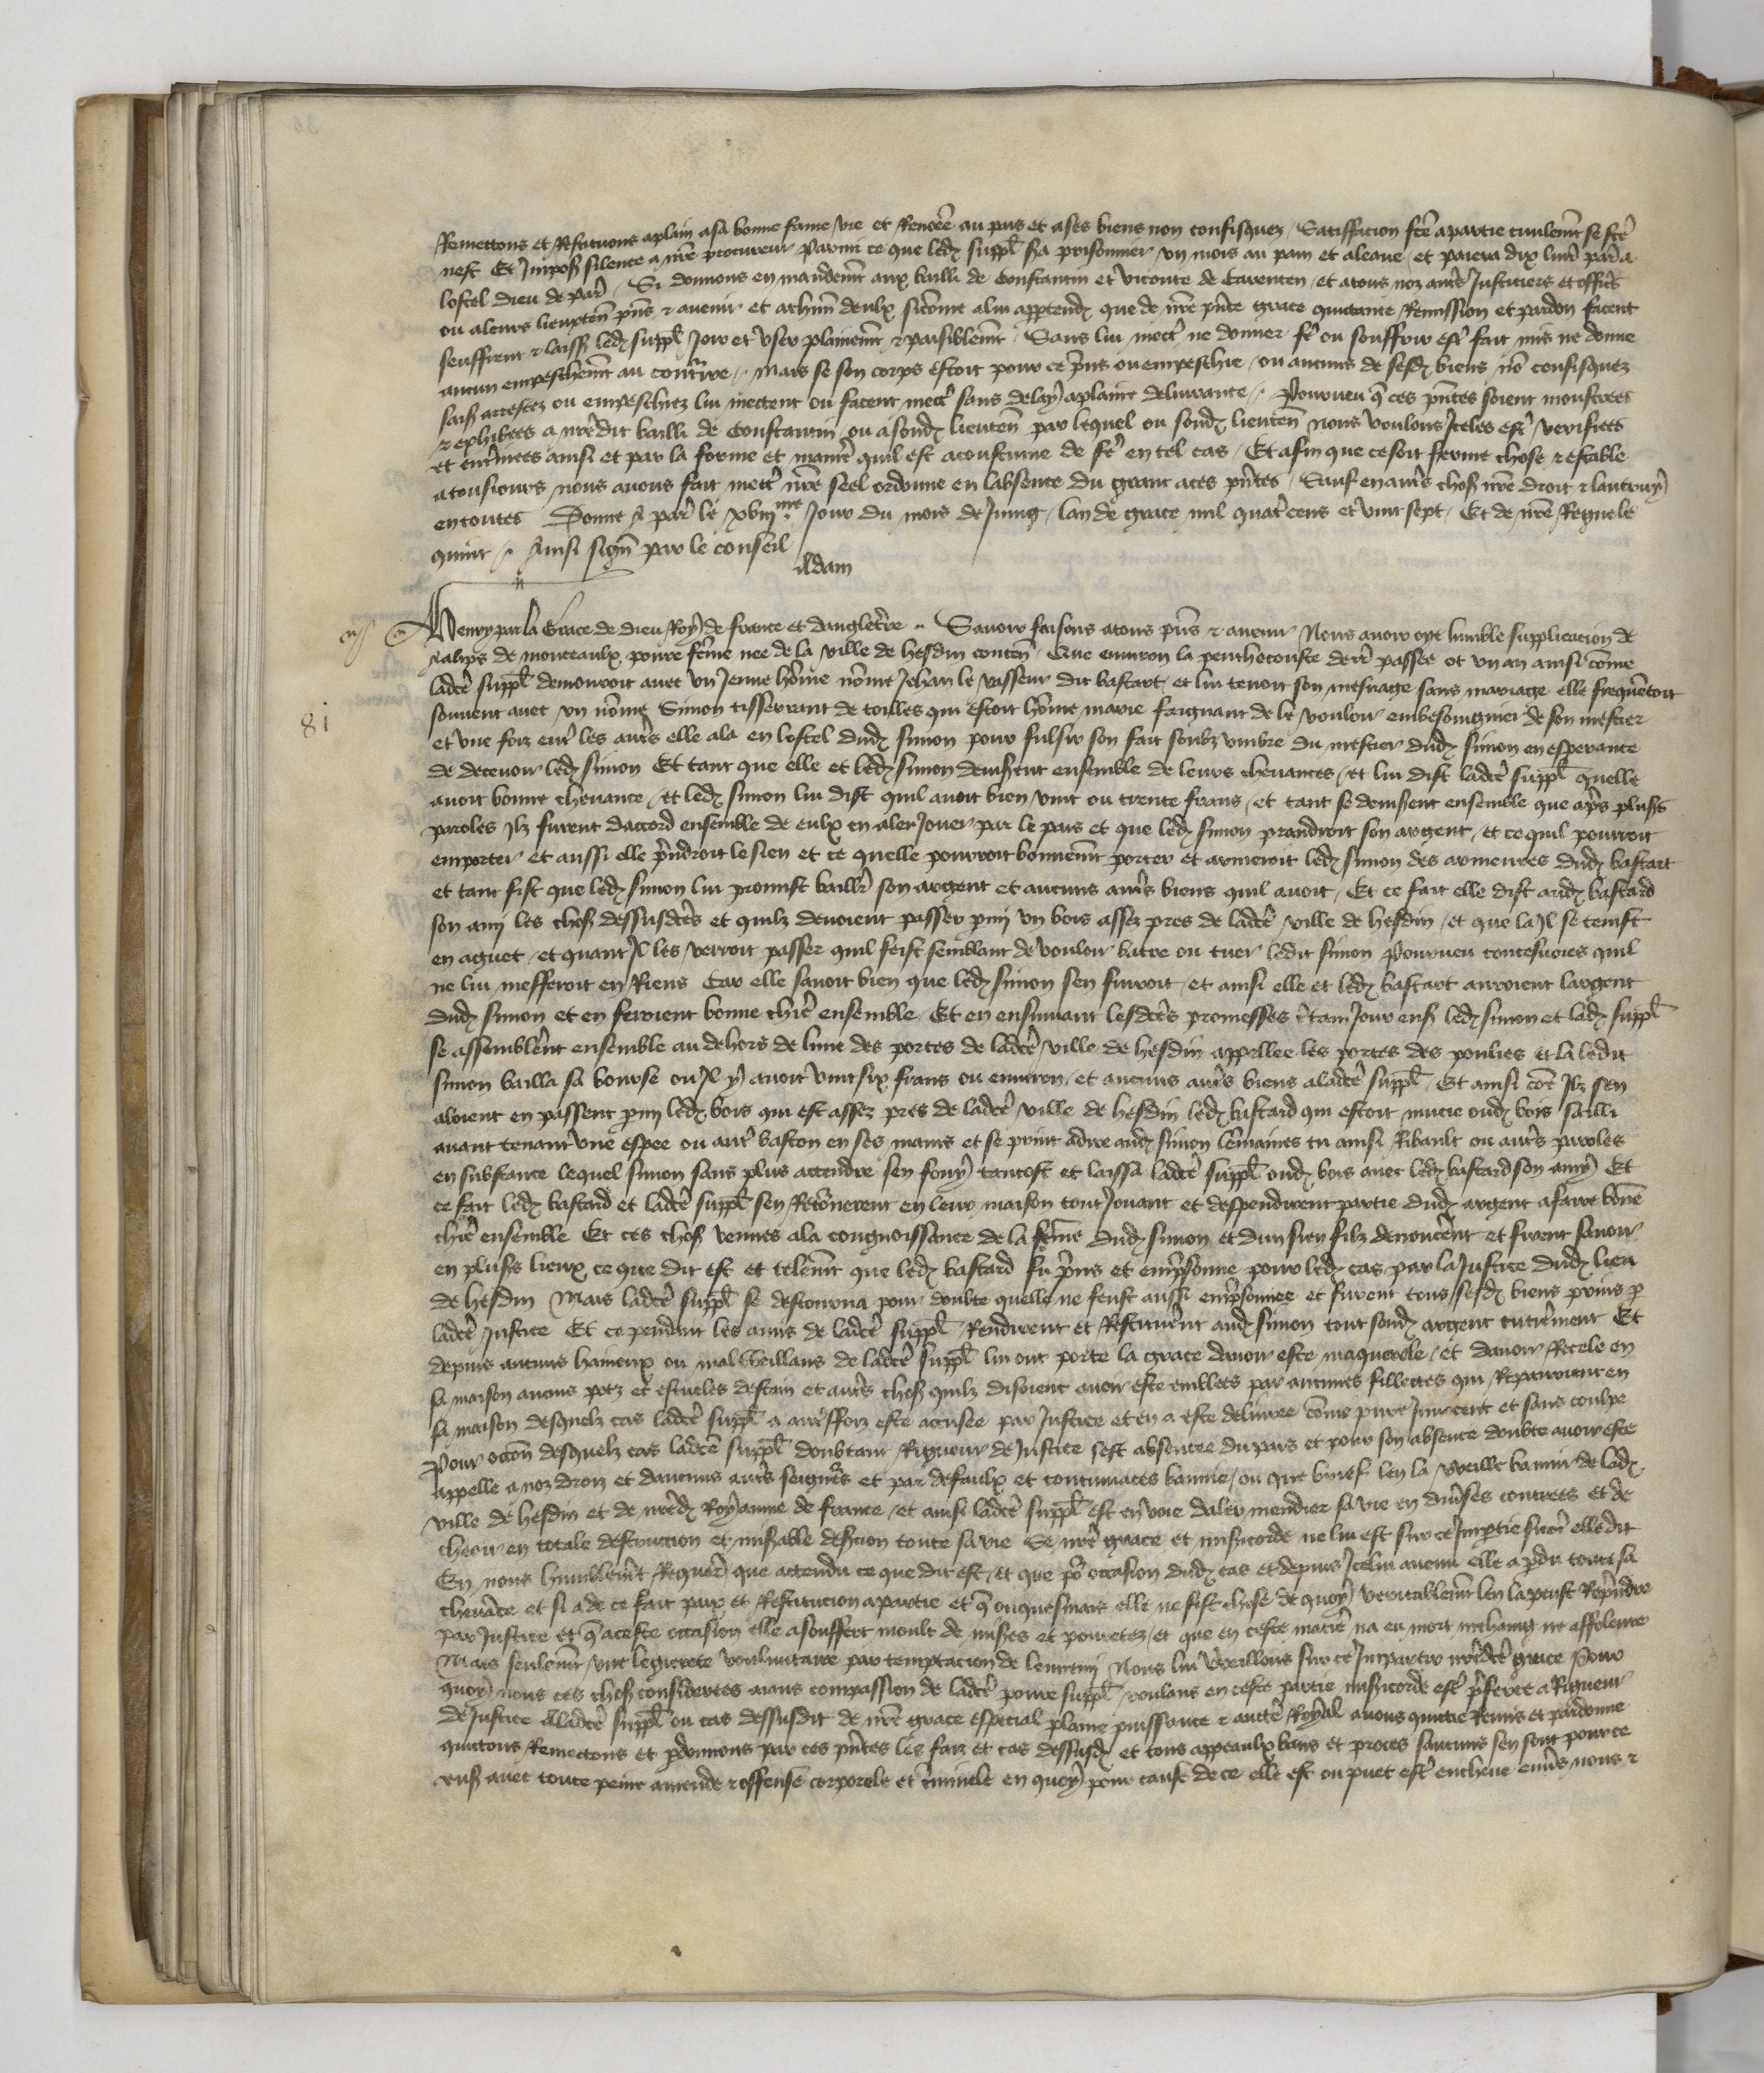 Remettons et Restituons aplain asa bonne fame vie et Renõmee au pais et ases biens non confisquez / Satisffacion fcẽ apartie ciuilemẽt se fcẽ
nest Et Imposõ silence a nr̃e procureur Parmi ce que ledͭ suppl̃ sa prisonnier vn mois au pain et aleaue / et paiera dix liur̃ par̃ a
lostel dieu de par̃ / Si donnons en mandemẽt aux bailli de Constantin et viconte de Carenten / et atous noz autr̃s Justiciers et offic̃
ou aleurs lieuxten̄ pñs & auenir et achũn deulx sicõme alui apptendͬ que de nr̃e pñte grace quictance Remission et pardon facent
seuffrent & laissͬ ledͭ suppl̃ Joir et vser plainemẽt & paisiblemẽt / Sans lui mectr̃ ne donner fẽ ou souffrir estr̃ fait mis ne donne
aucun empeschemẽt au contr̃ire / mais se son corps estoit pour ce p̃ns ou empeschie / ou aucuns de sesdͭ biens nõ confisquez
saisͬ arrestez ou empeschiez lui mettent ou facent mectr̃ sans delay aplaine deliurance / Pourueu q̃ ces pñtes soient monstrees
& exhibees a nr̃edit bailli de Constantin ou asondͭ lieuten̄ par lequel ou sondͭ lieuten̄ nous voulons Iceles estr̃ verifiees
et enter̃inees ainsi et par la forme et manier̃ quil est acoustume de fẽ en tel cas / Et afin que ce soit ferme chose & estable
atousiours nous auons fait mectr̃ nr̃e seel ordonne en labsence du grant aces pñtes / Sauf en autr̃s chosͬ nr̃e droit & lautruy
en toutes Donne A par̃ le xviijme Jour du mois de Juing / lan de grace mil quatr̃cens et vint sept / Et de nr̃e Regne le
quint / Ainsi signẽ par le conseil
Adam
Henry par la Grace de Dieu Roy de france et dangleterr̃e Sauoir faisons atous pñs & auenir Nous auoir oye lumble supplicacion de
Aalips de monceaulx poure fẽme nee de la ville de hesdin conten̄ Que enuiron la penthecouste derr̃ passee ot vn an ainsi cõme
ladcẽ suppl̃ demouroit auec vn Jeune hõme nõme Jehan le vasseur dit bastart / et lui tenoit son mesnage sans mariage elle frequẽtoit
souuent auec vn nõme Simon tisserrant de toilles qui estoit hõme marie faignant de le vouloir embesoingnier de son mestier
8i
et vne foiz entr̃ les autr̃s elle ala en lostel dudͭ simon pour fulsir son fait soubz vmbre du mestier dudͭ simon en esperance
de deceuoir ledͭ simon Et tant que elle et ledͭ simon deuiserent ensemble de leurs cheuances / et lui dist ladcẽ suppl̃ quelle
auoit bonne cheuance / et ledͭ simon lui dist quil auoit bien vint ou trente frans / et tant se deuiserent ensemble que apr̃s plusͬs
paroles ilz furent daccord ensemble de eulx en aler Jouer par le pais et que ledͭ simon prandroit son argent / et ce quil pourroit
emporter et aussi elle p̃ndroit le sien et ce quelle pourroit bonnemẽt porter et armeroit ledͭ simon des armeures dudͭ bastart
et tant fist que ledͭ simon lui promist baillr̃ son argent et aucuns autr̃s biens quil auoit / Et ce fait elle dist audͭ bastard
son ami les chosͬ dessusdcẽs et quilz deuoient passer p̃mi vn bois assez pres de ladcẽ ville de hesdin / et que la Il se tenist
en aguet / et quant Il les verroit passer quil feist semblant de vouloir batre ou tuer ledit simon Pourueu toutesuoies quil
ne lui mefferoit en Riens Car elle sauoit bien que ledͭ simon sen fuiroit / et ainsi elle et ledͭ bastart auroient largent
dudͭ simon et en feroient bonne chier̃ ensemble Et en ensuiuant lesdcẽs promesses c̃tain Jour ensͬ ledͭ simon et ladͭ suppl̃
se assemblerẽnt ensemble au dehors de lune des portes de ladcẽ ville de hesdin appellee les portes des poulies et la ledit
simon bailla sa bourse ou Il y auoit vint six frans ou enuiron / et aucuns autr̃s biens a ladcẽ suppl̃ / Et ainsi cõe Ilz sen
aloient en passent p̃mi ledͭ bois qui est assez pres de ladcẽ ville de hesdin ledͭ bastard qui estoit mucie oudͭ bois sailli
auant tenant vne espee ou autr̃ baston en ses mains et se print adire audͭ simon lẽmaines tu ainsi Ribault ou autr̃s paroles
en substance lequel simon sans plus actendre sen fouy tantost et laissa ladcẽ suppl̃ oudͭ bois auec ledͭ bastard son amy Et
ce fait ledͭ bastard et ladcẽ suppl̃ sen Retõnerent en leur maison tout Jouant et despendirent partie dudͭ argent afaire bõne
chier̃ ensemble Et ces chosͬ venues ala congnoissance de la fẽme dudͭ simon et dun sien filz denoncerẽnt et firent sauoir
en plusͬs lieux ce que dit est et telemẽt que ledͭ bastard fu p̃ns et emp̃sonne pour ledͭ cas par la Justice dudͭ lieu
de hesdin Mais ladcẽ suppl̃ se destourna pour doubte quelle ne feust aussi emp̃sonnee et furent tous sesdͭ biens prins p̃
ladcẽ Justice Et ce pendant les amis de ladcẽ suppl̃ Rendirent et Restituerẽnt audͭ simon tout sondͭ argent entierẽment Et
depuis aucuns haineux ou malueillans de ladcẽ suppl̃ lui ont porte la grace dauoir este maquerele / et dauoir Recele en
sa maison aucuns potz et escueles destain et autr̃s chosͬ quilz disoient auoir este emblees par aucunes fillettes qui Repairoient en
sa maison desquelz cas ladcẽ suppl̃ a autr̃ffoiz este accusee par Justice et en a este deliuree cõme pure Innocent et sans coulpe
Pour occõn desquelz cas ladcẽ suppl̃ doubtant Rigueur de Justice sest absentee du pais et pour son absence doubte auoir este
appelle a noz droiz et daucuns autr̃s seignr̃s et par defaulx et contumaces bannie / ou que brief len la vueille bannir de ladͭ
ville de hesdin et de nr̃edͭ Royaume de france / et ainsi ladcẽ suppl̃ est en voie daler mendier sa vie en diuerses contrees et de
cheoir en totale destruccion et miserable deser̃cion toute sa vie Se nr̃e grace et misericorde ne lui est sur ce Imp̃tie sicõe elle dit
En nous humblemẽt Requer̃ que actendu ce que dit est / et que põ occasion dudͭ cas et depuis Icelui auenu elle a p̃du toute sa
cheuãce et si a de ce fait paix et Restitucion apartie et q̃ onquesmais elle ne fist chose de quoy veritablemẽt len la peust Rep̃ndre
par Justice et q̃ aceste occasion elle asouffert moult de miser̃es et pouretez / et que en ceste matier̃ na eu mort mehaing ne affoleure
Mais seulemẽt vne legierete voulontaire par temptacion de lennemi Nous lui vueillons sur ce Impartir nr̃edcẽ grace Pour
quoy nous ces chosͬ considerees aians compassion de ladcẽ poure suppl̃ voulans en ceste partie misericorde estr̃ p̃feree a Rigueur
de Justice Aladcẽ suppl̃ ou cas dessusdit de nr̃e grace especial plaine puissance & auctẽ Royal auons quicte Remis et pardonne
quictons Remectons et p̃donnons par ces pñtes les faiz et cas dessusdͭ et tous appeaulx bans et proces saucuns sen sont pour ce
ensͬ auec toute peine amende & offense corporele et c̃iminele en quoy pour cause de ce elle est ou puet estr̃ encheue enuers nous &